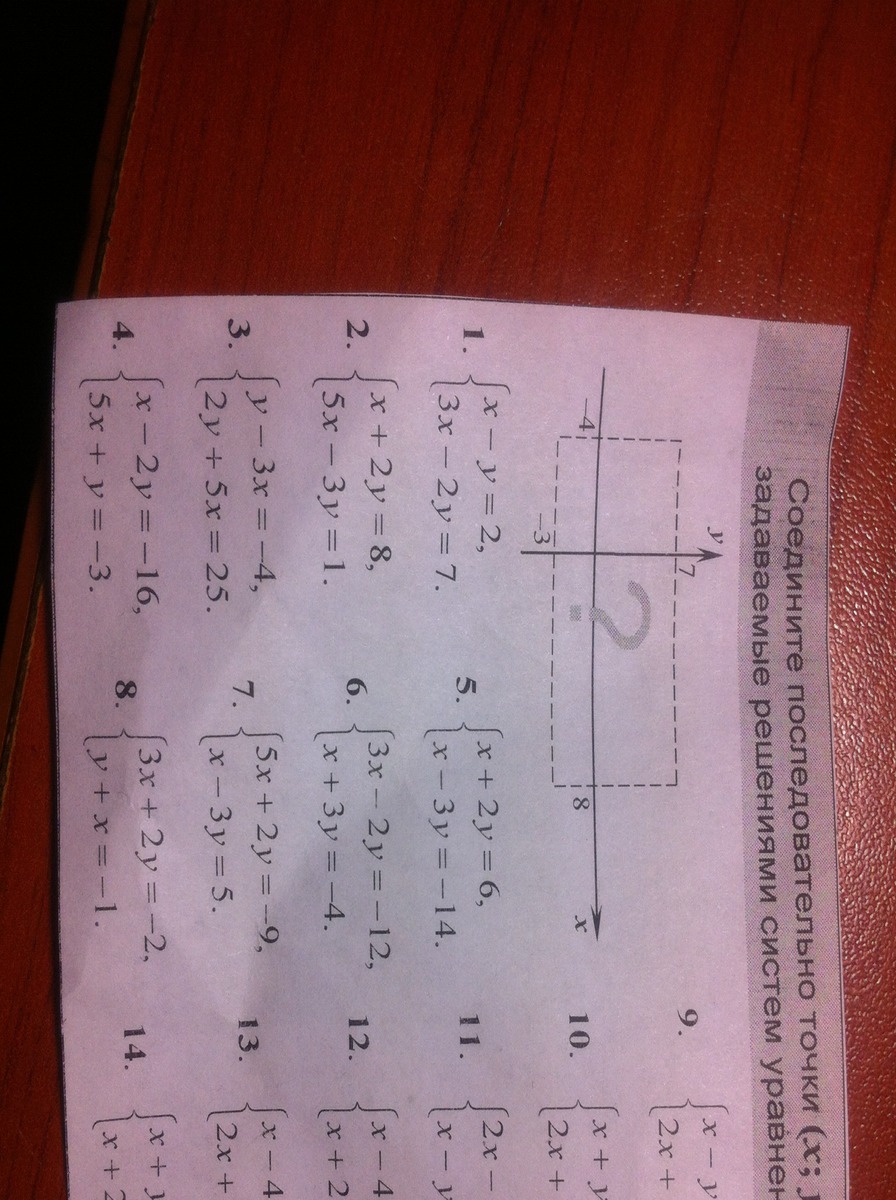 Соедините последовательно точки (x;
задаваемые решениями систем
y
7
-4
-3
8
x
?
1. { x - y = 2,
3x - 2y = 7.
2. { x + 2y = 8,
5x - 3y = 1.
3. { y - 3x = -4,
2y + 5x = 25.
4. { x - 2y = -16,
5x + y = -3.
5. { x + 2y = 6,
x - 3y = -14.
6. { 3x - 2y = -12,
x + 3y = -4.
7. { 5x + 2y = -9,
x - 3y = 5.
8. { 3x + 2y = -2,
y + x = -1.
9. { x - y
2x +
10. { x + y
2x +
11. { 2x -
x - y
12. { x - 4
x + 2
13. { x - 4
2x +
14. { x + y
x + 2